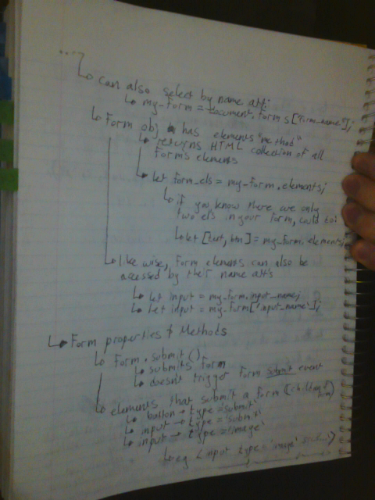 can also select by name att:
my-form = document.forms["form_name"];
Form obj has elements "method"
returns HTML collection of all
form's elements
let form_els = my_form.elements;
if you know there are only
two els in your form, could
let [text, btn] = my_form.elements
likewise, form elements can also be
accessed by their name atts
let input = my_form.input_name;
let input = my_form['input_name'];
Form properties & Methods
Form.submit()
submits form
doesn't trigger form submit event
elements that submit a form
button → type = submit
input → type = submit
input → type = image
e.g. <input type='image'